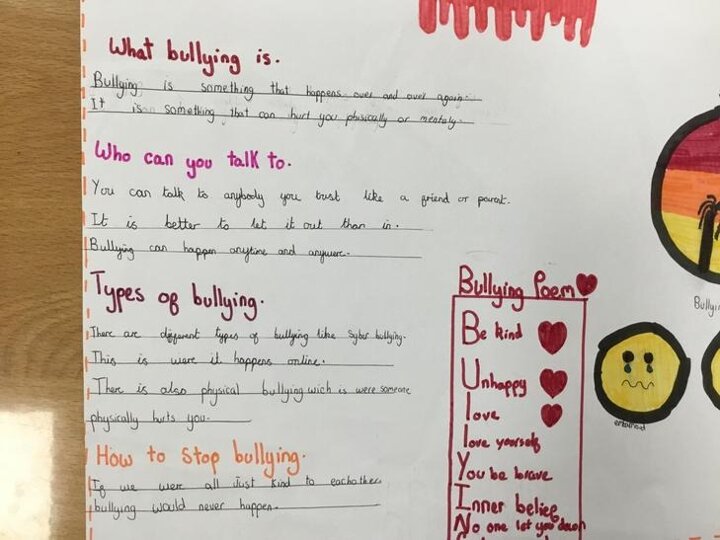 What bullying is.
Bullying is something that happens over and over again.
It is something that can hurt you phisically or mentaly.
Who can you talk to.
You can talk to anybody you trust like a friend or parent.
It is better to let it out than in.
Bullying can happen anytime and anywere.
Types of bullying.
There are different types of bullying like syber bullying.
This is were it happens online.
There is also physical bullying wich is were someone
physically hurts you.
How to stop bullying.
If we were all Just kind to eachother
bullying would never happen.
Bullying Poem
Be kind
Unhappy
love
love yourself
You be brave
Inner belief
No one let you down
Bullyin